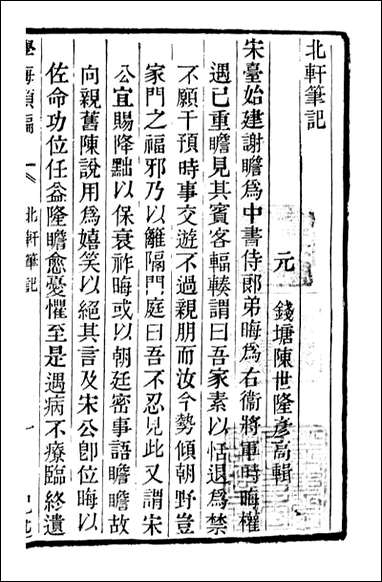 北軒筆記
元　錢塘陳世隆彥高輯
宋臺始建謝瞻爲中書侍郎弟晦爲右衞將軍時晦權
遇已重瞻見其賓客輻輳謂曰吾家素以恬退爲業
不願干預時事交遊不過親朋而汝今勢傾朝野豈
家門之福邪乃以籬隔門庭曰吾不忍見此又謂宋
公宜賜降黜以保衰祚晦或以朝廷密事語瞻瞻故
向親舊陳說用爲嬉笑以絕其言及宋公卽位晦以
佐命功位任益隆瞻愈憂懼至是遇病不療臨終遺
學海類編
北軒筆記
一